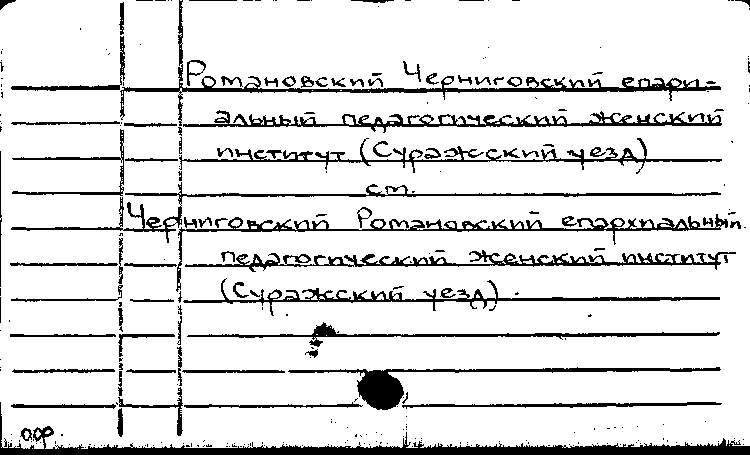 Романовский Черниговский епархи-
альный педагогический женский
институт (Суражский уезд)
см.
Черниговский Романовский епархиальный
педагогический женский институт
(Суражский уезд).